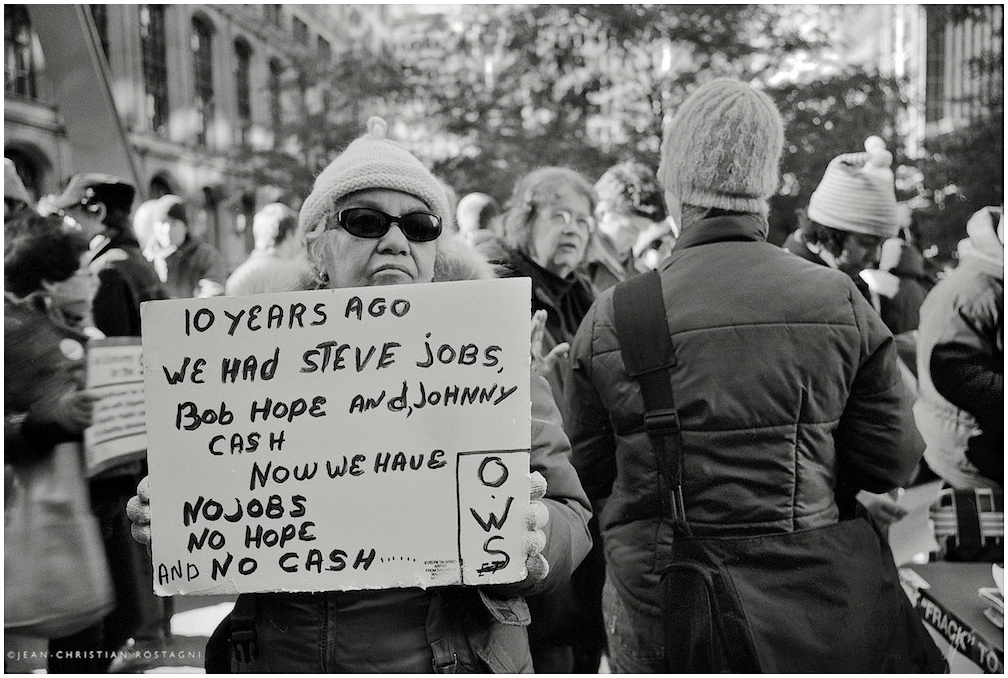 10 YEARS AGO
WE HAd STEVE JOBS,
Bob HOPE ANd, JOHNNY
CASH
NOW WE HAVE
NO JOBS
NO HOPE
AND NO CASH......
O.W.S
©JEAN-CHRISTIAN ROSTAGNI
"FRACK" TO